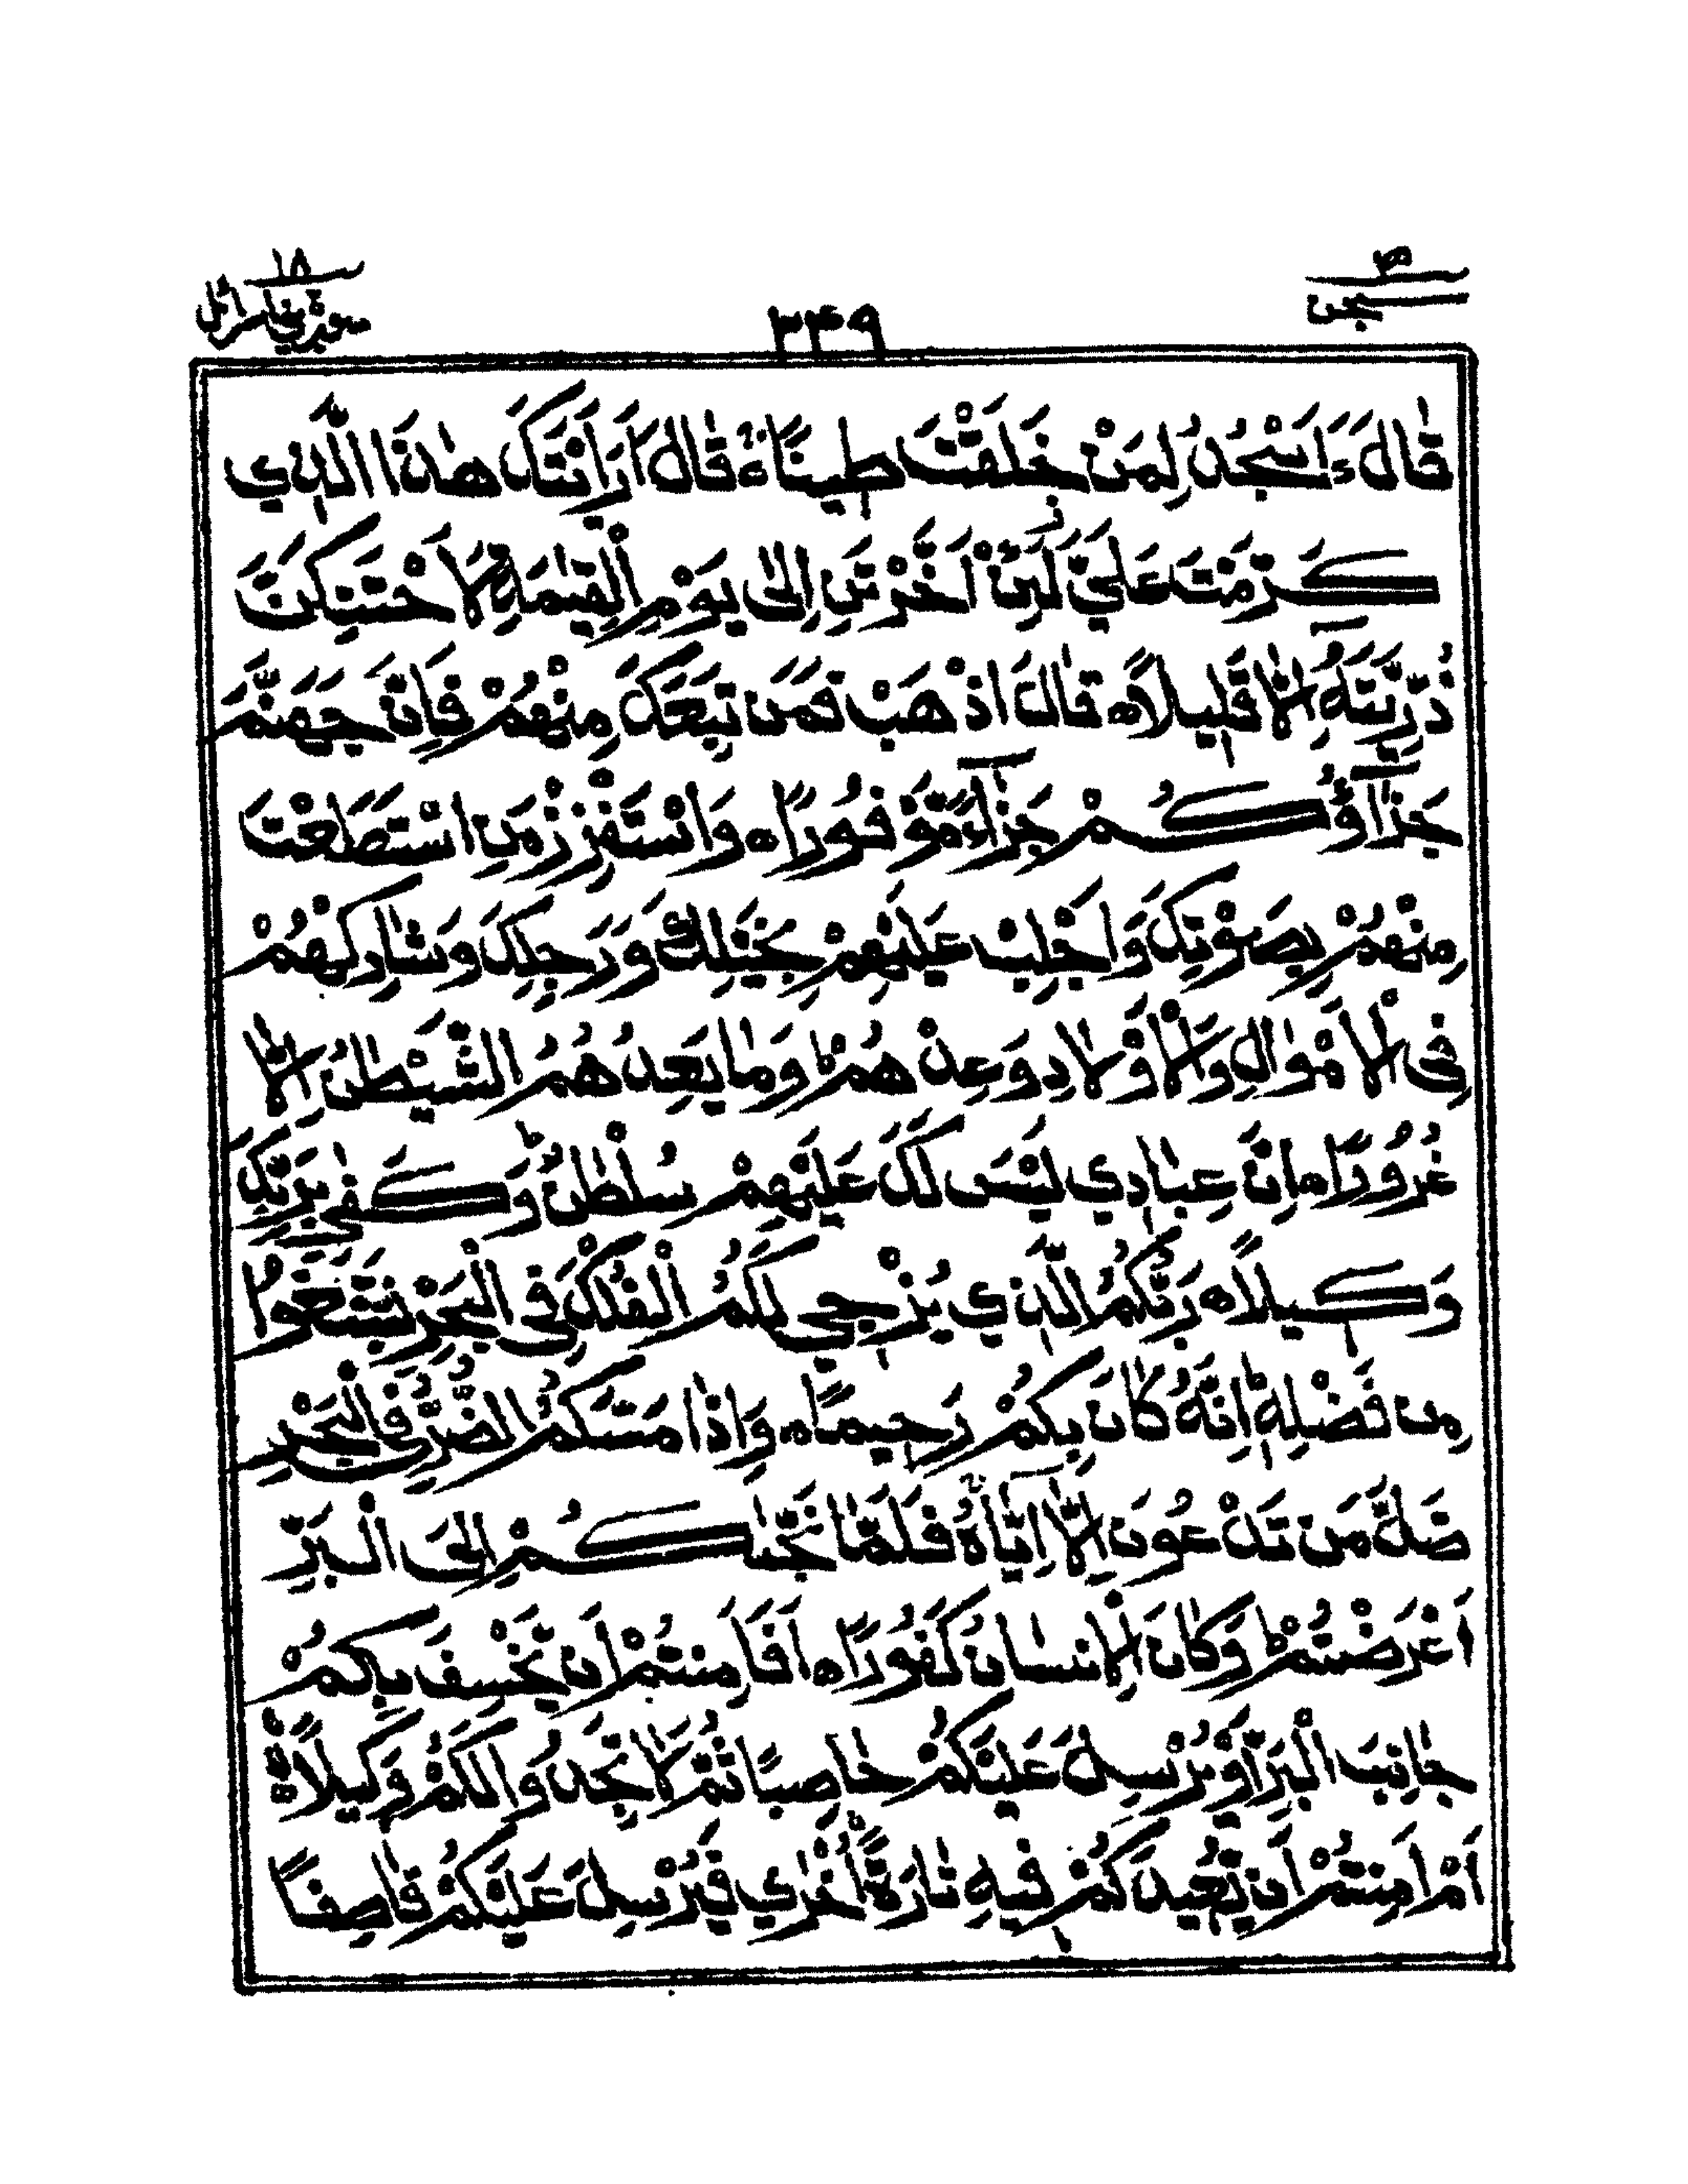 سبحٰن
٣٤٩
سورة بنی اسرائیل ١٨
قَالَ ءَاَسْجُدُ لِمَنْ خَلَقْتَ طِينًا ۞ قَالَ اَرَاَيْتَكَ هٰذَا الَّذِي
كَرَّمْتَ عَلَيَّ لَئِنْ اَخَّرْتَنِ اِلٰى يَوْمِ الْقِيٰمَةِ لَاَحْتَنِكَنَّ
ذُرِّيَّتَهٗٓ اِلَّا قَلِيلًا ۞ قَالَ اذْهَبْ فَمَنْ تَبِعَكَ مِنْهُمْ فَاِنَّ جَهَنَّمَ
جَزَآؤُكُمْ جَزَآءً مَّوْفُورًا ۞ وَاسْتَفْزِزْ مَنِ اسْتَطَعْتَ
مِنْهُمْ بِصَوْتِكَ وَاَجْلِبْ عَلَيْهِمْ بِخَيْلِكَ وَرَجِلِكَ وَشَارِكْهُمْ
فِى الْاَمْوَالِ وَالْاَوْلَادِ وَعِدْهُمْ ؕ وَمَا يَعِدُهُمُ الشَّيْطٰنُ اِلَّا
غُرُورًا ۞ اِنَّ عِبَادِي لَيْسَ لَكَ عَلَيْهِمْ سُلْطٰنٌ ؕ وَكَفٰى بِرَبِّكَ
وَكِيلًا ۞ رَبُّكُمُ الَّذِي يُزْجِي لَكُمُ الْفُلْكَ فِى الْبَحْرِ لِتَبْتَغُوا
مِنْ فَضْلِهٖ ؕ اِنَّهٗ كَانَ بِكُمْ رَحِيمًا ۞ وَاِذَا مَسَّكُمُ الضُّرُّ فِى الْبَحْرِ
ضَلَّ مَنْ تَدْعُونَ اِلَّآ اِيَّاهُ ۚ فَلَمَّا نَجّٰىكُمْ اِلَى الْبَرِّ
اَعْرَضْتُمْ ؕ وَكَانَ الْاِنْسَانُ كَفُورًا ۞ اَفَاَمِنْتُمْ اَنْ يَّخْسِفَ بِكُمْ
جَانِبَ الْبَرِّ اَوْ يُرْسِلَ عَلَيْكُمْ حَاصِبًا ثُمَّ لَا تَجِدُوا لَكُمْ وَكِيلًا ۞
اَمْ اَمِنْتُمْ اَنْ يُّعِيدَكُمْ فِيهِ تَارَةً اُخْرٰى فَيُرْسِلَ عَلَيْكُمْ قَاصِفًا